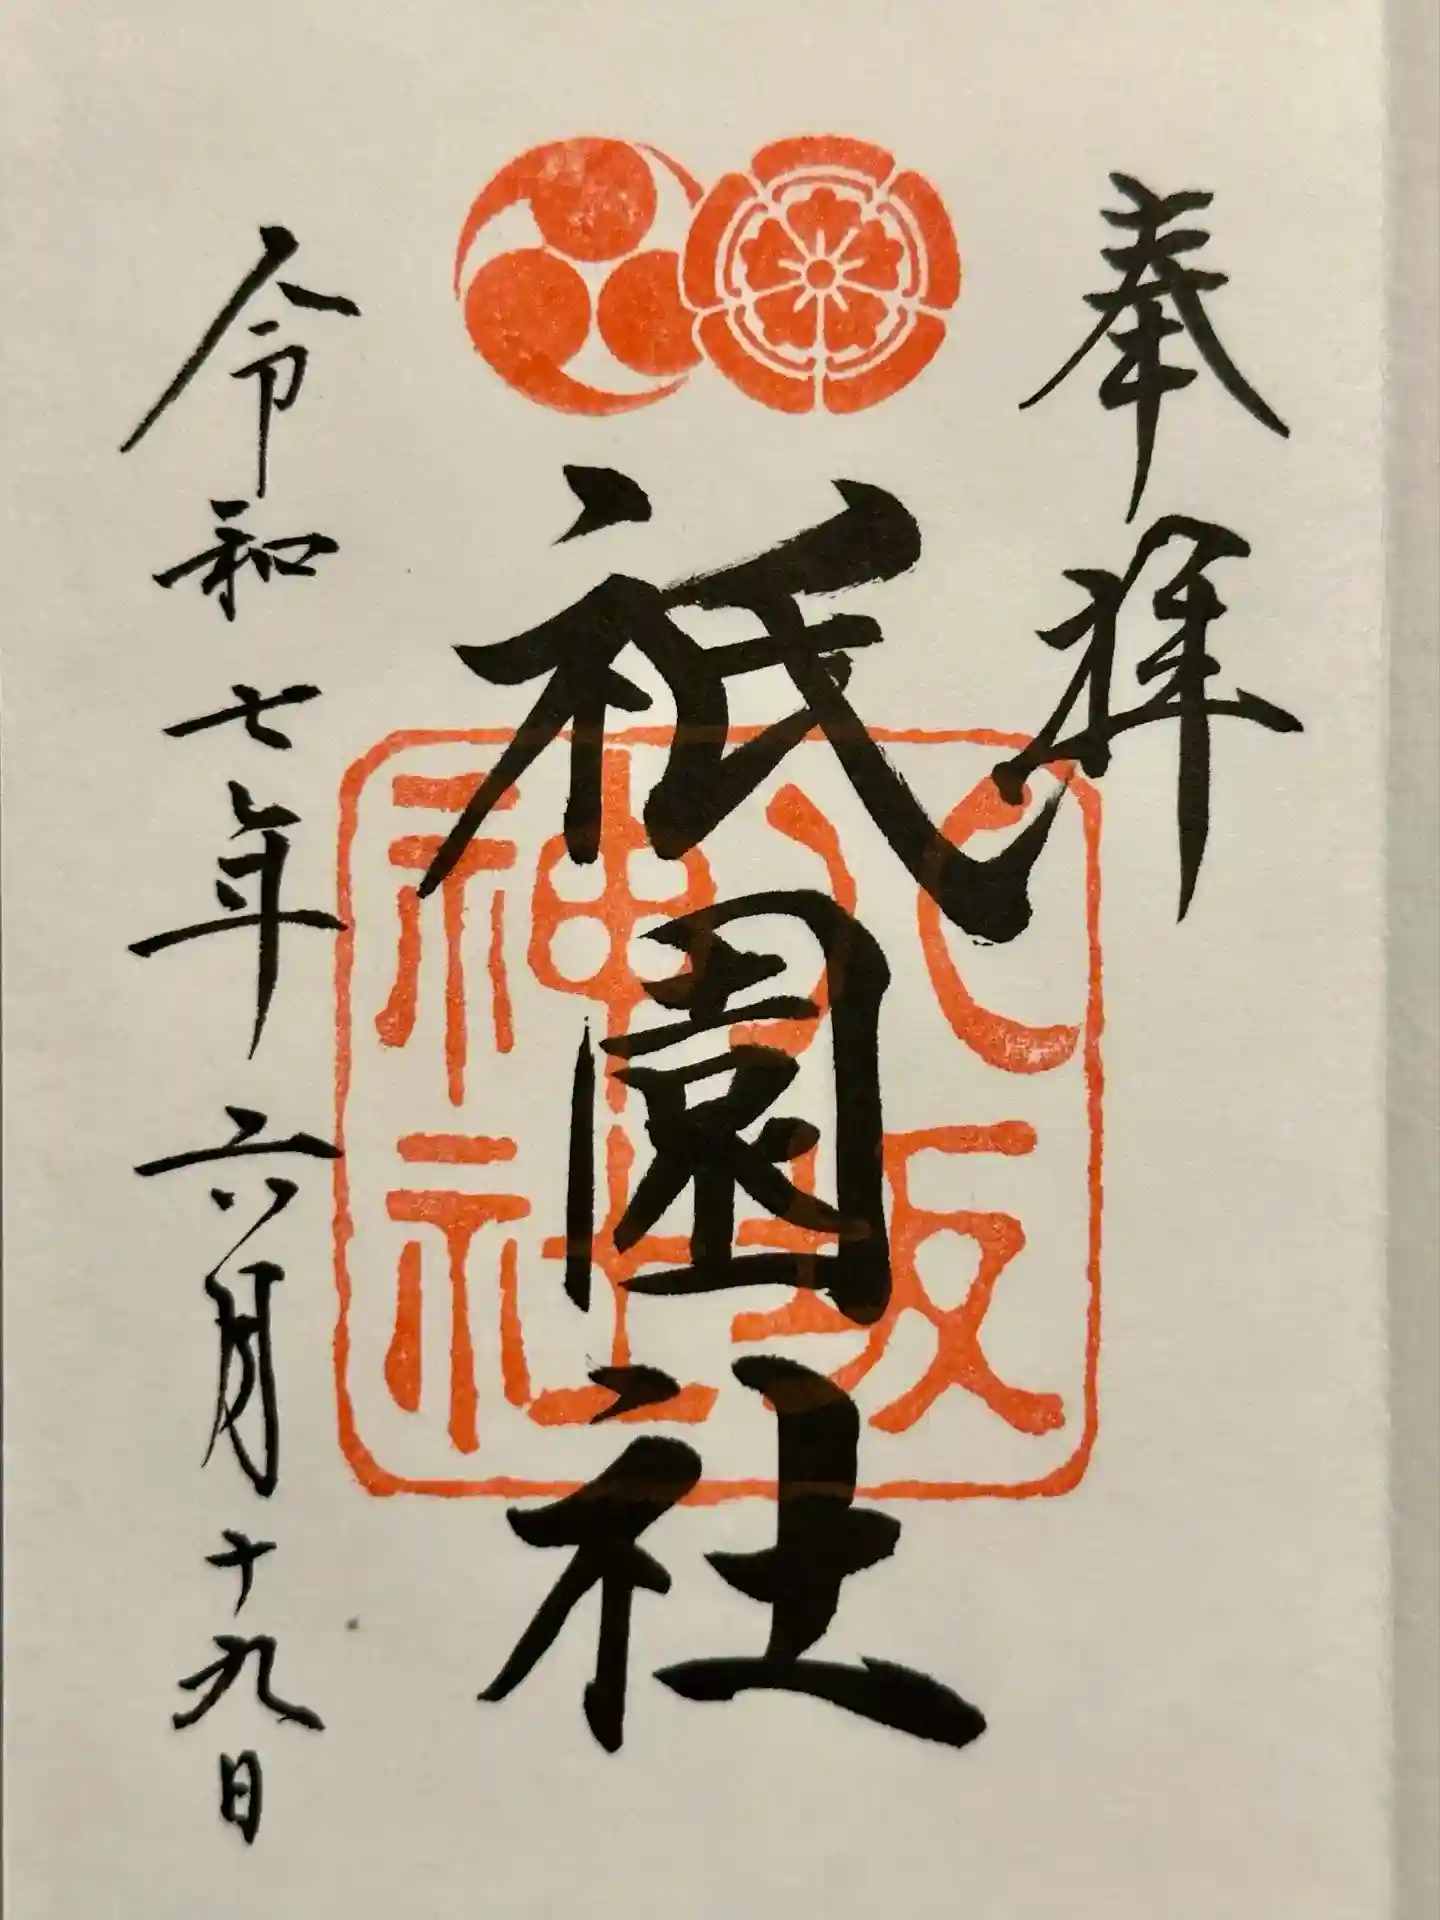 奉拝
祇園社
八坂神社
令和七年六月十九日